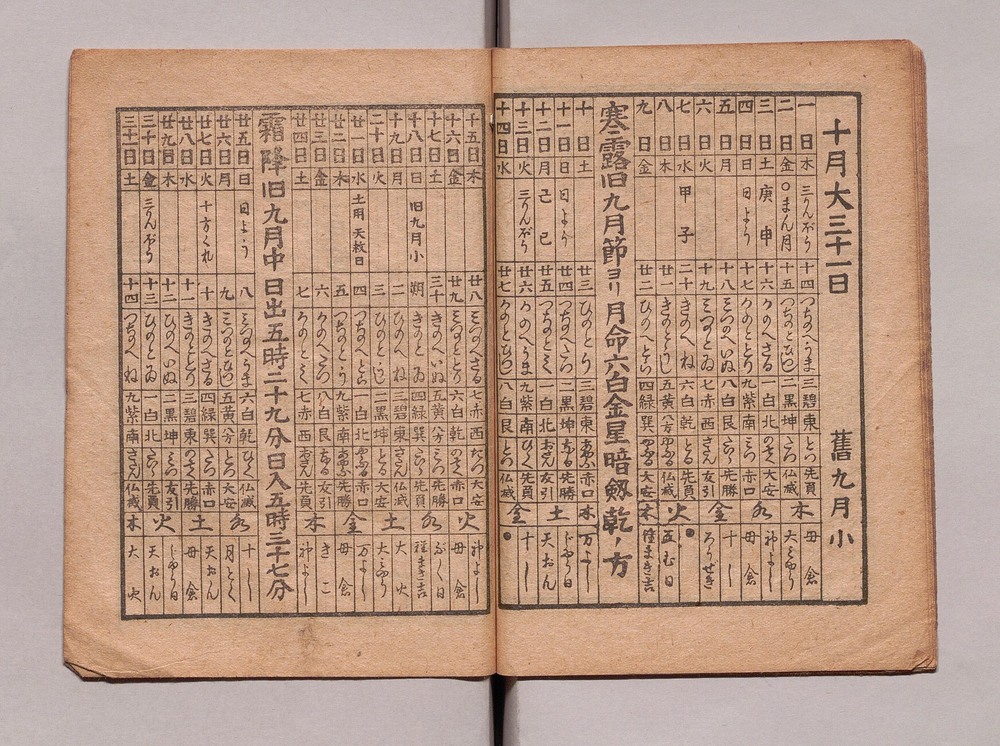 十月大三十一日 舊九月小
一日木 三りんぼう 十四 つちのへうま 三碧 東 とつ 先負 母倉
二日金 〇まん月 十五 つちのとひつじ 二黒 坤 仏滅
三日土 庚申 十六 かのへさる 一白 北 大安 神よし
四日日 日よう 十七 かのととり 九紫 南 赤口 母倉
五日月 十八 みつのへいぬ 八白 艮 先勝 十し
六日火 十九 みつのとゐ 七赤 西 友引
七日水 甲子 二十 きのへね 六白 乾 先負 ●
八日木 廿一 きのとうし 五黄 八方 仏滅 五む日
九日金 廿二 ひのへとら 四緑 巽 大安 種まき吉
寒露旧九月節ヨリ月命六白金星暗剱乾ノ方
十日土 廿三 ひのとう 三碧 東 赤口 万よし
十一日日 日よう 廿四 つちのへたつ 二黒 坤 先勝
十二日月 己巳 廿五 つちのとみ 一白 北 友引 天おん
十三日火 三りんぼう 廿六 かのへうま 九紫 南 先負 十し
十四日水 廿七 かのとひつじ 八白 艮 仏滅 ●
十五日木 廿八 みつのへさる 七赤 西 大安 神よし
十六日金 廿九 みつのととり 六白 乾 のぞく 赤口 母倉
十七日土 三十 きのへいぬ 五黄 八方 みつ 先勝
十八日日 旧九月小 朔 きのとゐ 四緑 巽 先負 種まき吉
十九日月 二 ひのへね 三碧 東 さだん 仏滅 大火
二十日火 三 ひのとうし 二黒 坤 とる 大安
廿一日水 土用 天赦日 四 つちのへとら 一白 北 やぶる 赤口 万よし
廿二日木 五 つちのとう 九紫 南 あやぶ 先勝 母倉
廿三日金 六 かのへたつ 八白 艮 なる 友引
廿四日土 七 かのとみ 七赤 西 おさん 先負 神よし
霜降旧九月中日出五時二十九分日入五時三十七分
廿五日日 日よう 八 みつのへうま 六白 乾 ひらく 仏滅 十し
廿六日月 九 みつのとひつじ 五黄 八方 とつ 大安 月とく
廿七日火 十方くれ 十 きのへさる 四緑 巽 たつ 赤口 天おん
廿八日水 十一 きのととり 三碧 東 のぞく 先勝 母倉
廿九日木 十二 ひのへいぬ 二黒 坤 みつ 友引
三十日金 三りんぼう 十三 ひのとゐ 一白 北 たいら 先負 天おん
三十一日土 十四 つちのへね 九紫 南 さだん 仏滅 大火
木
水
金
火
木
木
土
金
火
水
土
金
木
水
土
火
木